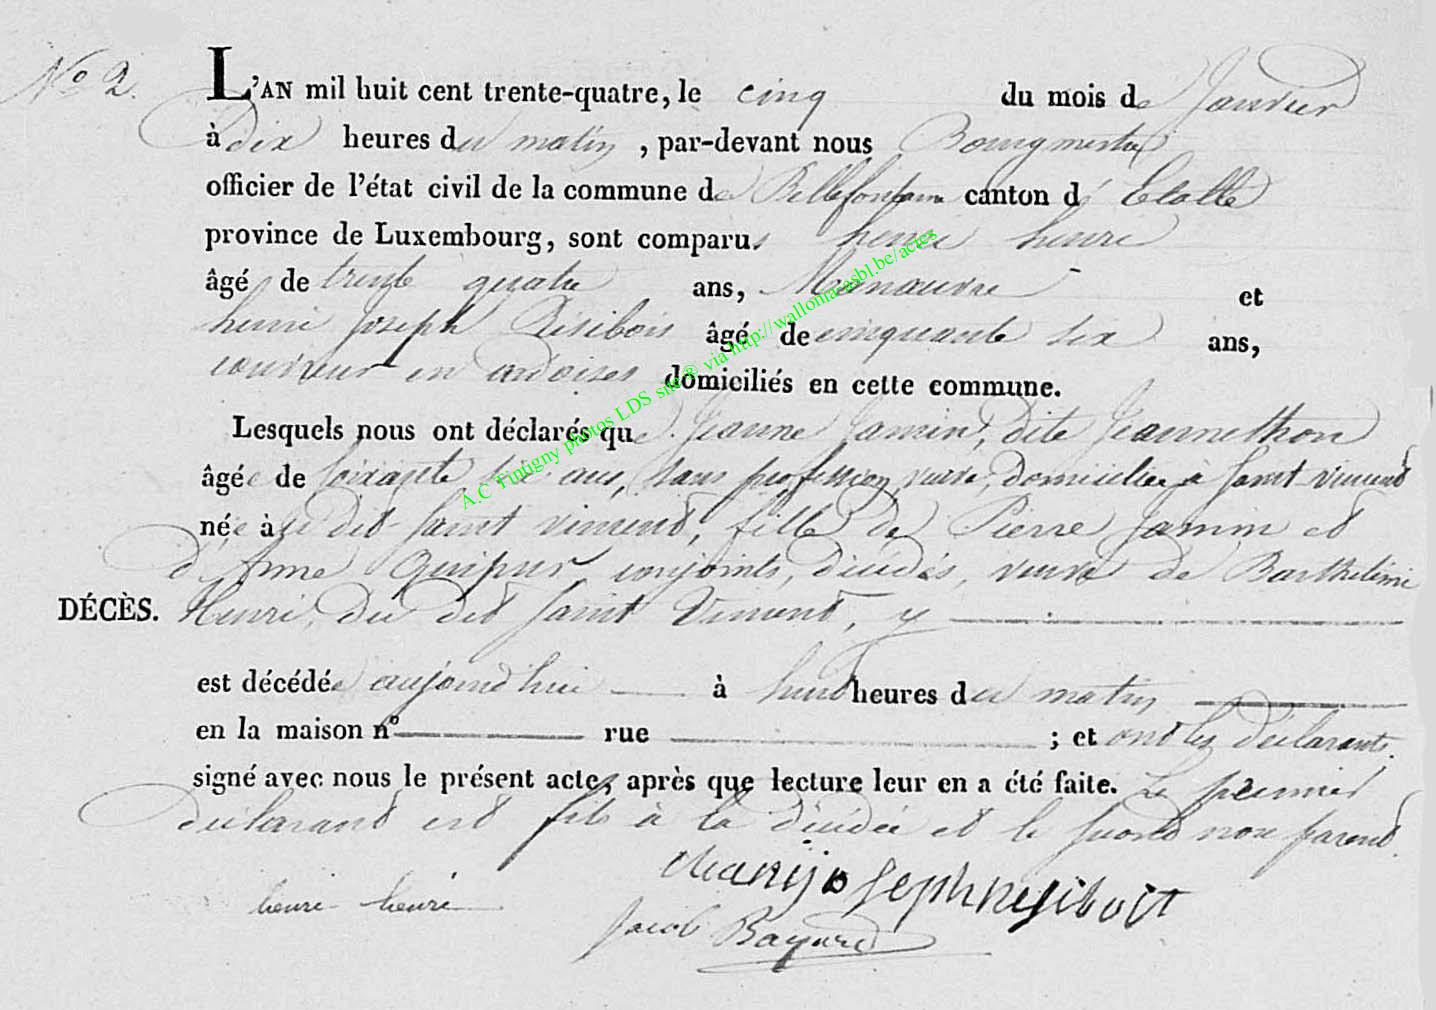 N.o 2. L'AN mil huit cent trente-quatre, le cinq du mois de Janvier
à dix heures du matin, par-devant nous Bourgmestre
officier de l'état civil de la commune de Bellefontaine canton d' Etalle
province de Luxembourg, sont comparus henri henri
âgé de trente quatre ans, Manœuvre et
henri Joseph Résibois âgé de cinquante six ans,
couvreur en ardoises domiciliés en cette commune.
Lesquels nous ont déclarés que Jeanne Jamin, dite Jeannethon
âgée de soixante six ans, sans profession, veuve, domiciliée à Saint-Vincent
née à dit Saint vincent, fille de Pierre Jamin et
d'Anne conjoints, décédés, veuve de Barthélémi
DÉCÈS. Henri, du dit Saint Vincent, y
est décédée aujourd'hui à huit heures du matin
en la maison n.o rue ; et ont les déclarants
signé avec nous le présent acte, après que lecture leur en a été faite. Le premier
déclarant est fils à la décédée et le second non parent.
henri joseph resiboit
henri henri
Jacob Bayard
A.C Tintigny photos LDS site ® via http://walloniacasbl.be/actes